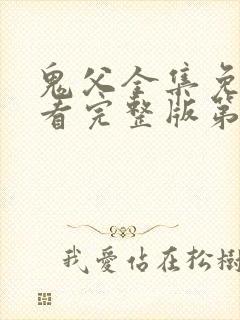 鬼父全集免
看完整版第
我爱佔在松樹